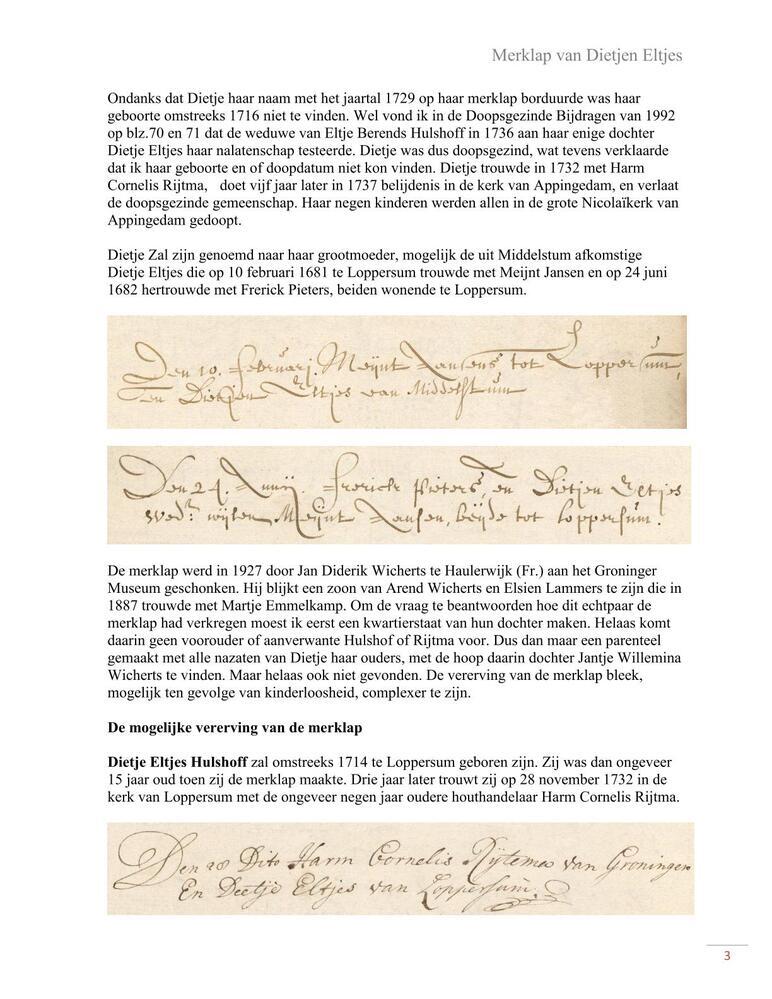 Merklap van Dietjen Eltjes
Ondanks dat Dietje haar naam met het jaartal 1729 op haar merklap borduurde was haar
geboorte omstreeks 1716 niet te vinden. Wel vond ik in de Doopsgezinde Bijdragen van 1992
op blz.70 en 71 dat de weduwe van Eltje Berends Hulshoff in 1736 aan haar enige dochter
Dietje Eltjes haar nalatenschap testeerde. Dietje was dus doopsgezind, wat tevens verklaarde
dat ik haar geboorte en of doopdatum niet kon vinden. Dietje trouwde in 1732 met Harm
Cornelis Rijtma,   doet vijf jaar later in 1737 belijdenis in de kerk van Appingedam, en verlaat
de doopsgezinde gemeenschap. Haar negen kinderen werden allen in de grote Nicolaïkerk van
Appingedam gedoopt.
Dietje Zal zijn genoemd naar haar grootmoeder, mogelijk de uit Middelstum afkomstige
Dietje Eltjes die op 10 februari 1681 te Loppersum trouwde met Meijnt Jansen en op 24 juni
1682 hertrouwde met Frerick Pieters, beiden wonende te Loppersum.
Den 10. Februarj. Meijnt Jansens tot Loppersum,
en Dietjen Eltjes van Middelstum
Den 24. Junij. Frerick Pieters, en Dietjen Eltjes
wed: wijlen Meijnt Jansen, beijde tot loppersum.
De merklap werd in 1927 door Jan Diderik Wicherts te Haulerwijk (Fr.) aan het Groninger
Museum geschonken. Hij blijkt een zoon van Arend Wicherts en Elsien Lammers te zijn die in
1887 trouwde met Martje Emmelkamp. Om de vraag te beantwoorden hoe dit echtpaar de
merklap had verkregen moest ik eerst een kwartierstaat van hun dochter maken. Helaas komt
daarin geen voorouder of aanverwante Hulshof of Rijtma voor. Dus dan maar een parenteel
gemaakt met alle nazaten van Dietje haar ouders, met de hoop daarin dochter Jantje Willemina
Wicherts te vinden. Maar helaas ook niet gevonden. De vererving van de merklap bleek,
mogelijk ten gevolge van kinderloosheid, complexer te zijn.
De mogelijke vererving van de merklap
Dietje Eltjes Hulshoff zal omstreeks 1714 te Loppersum geboren zijn. Zij was dan ongeveer
15 jaar oud toen zij de merklap maakte. Drie jaar later trouwt zij op 28 november 1732 in de
kerk van Loppersum met de ongeveer negen jaar oudere houthandelaar Harm Cornelis Rijtma.
Den 28 Dito Harm Cornelis Rijtema van Groningen
En Deetje Eltjes van Loppersum.
3